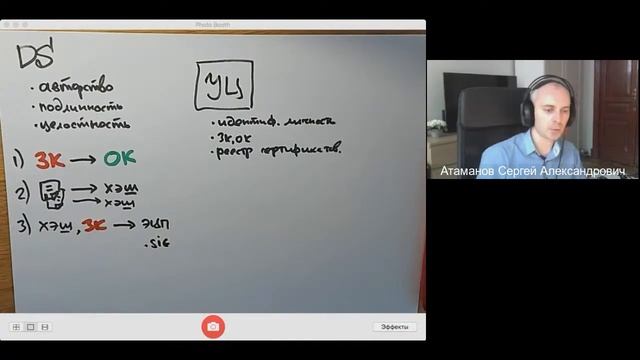 Photo Booth
DS
• авторство
• подлинность
• целостность
1) ЗК → ОК
2) → хэш
→ хэш
3) хэш, ЗК → ЭЦП
.sig
УЦ
• идентиф. личность
• ЗК, ОК
• реестр сертификатов.
Атаманов Сергей Александрович
Эффекты